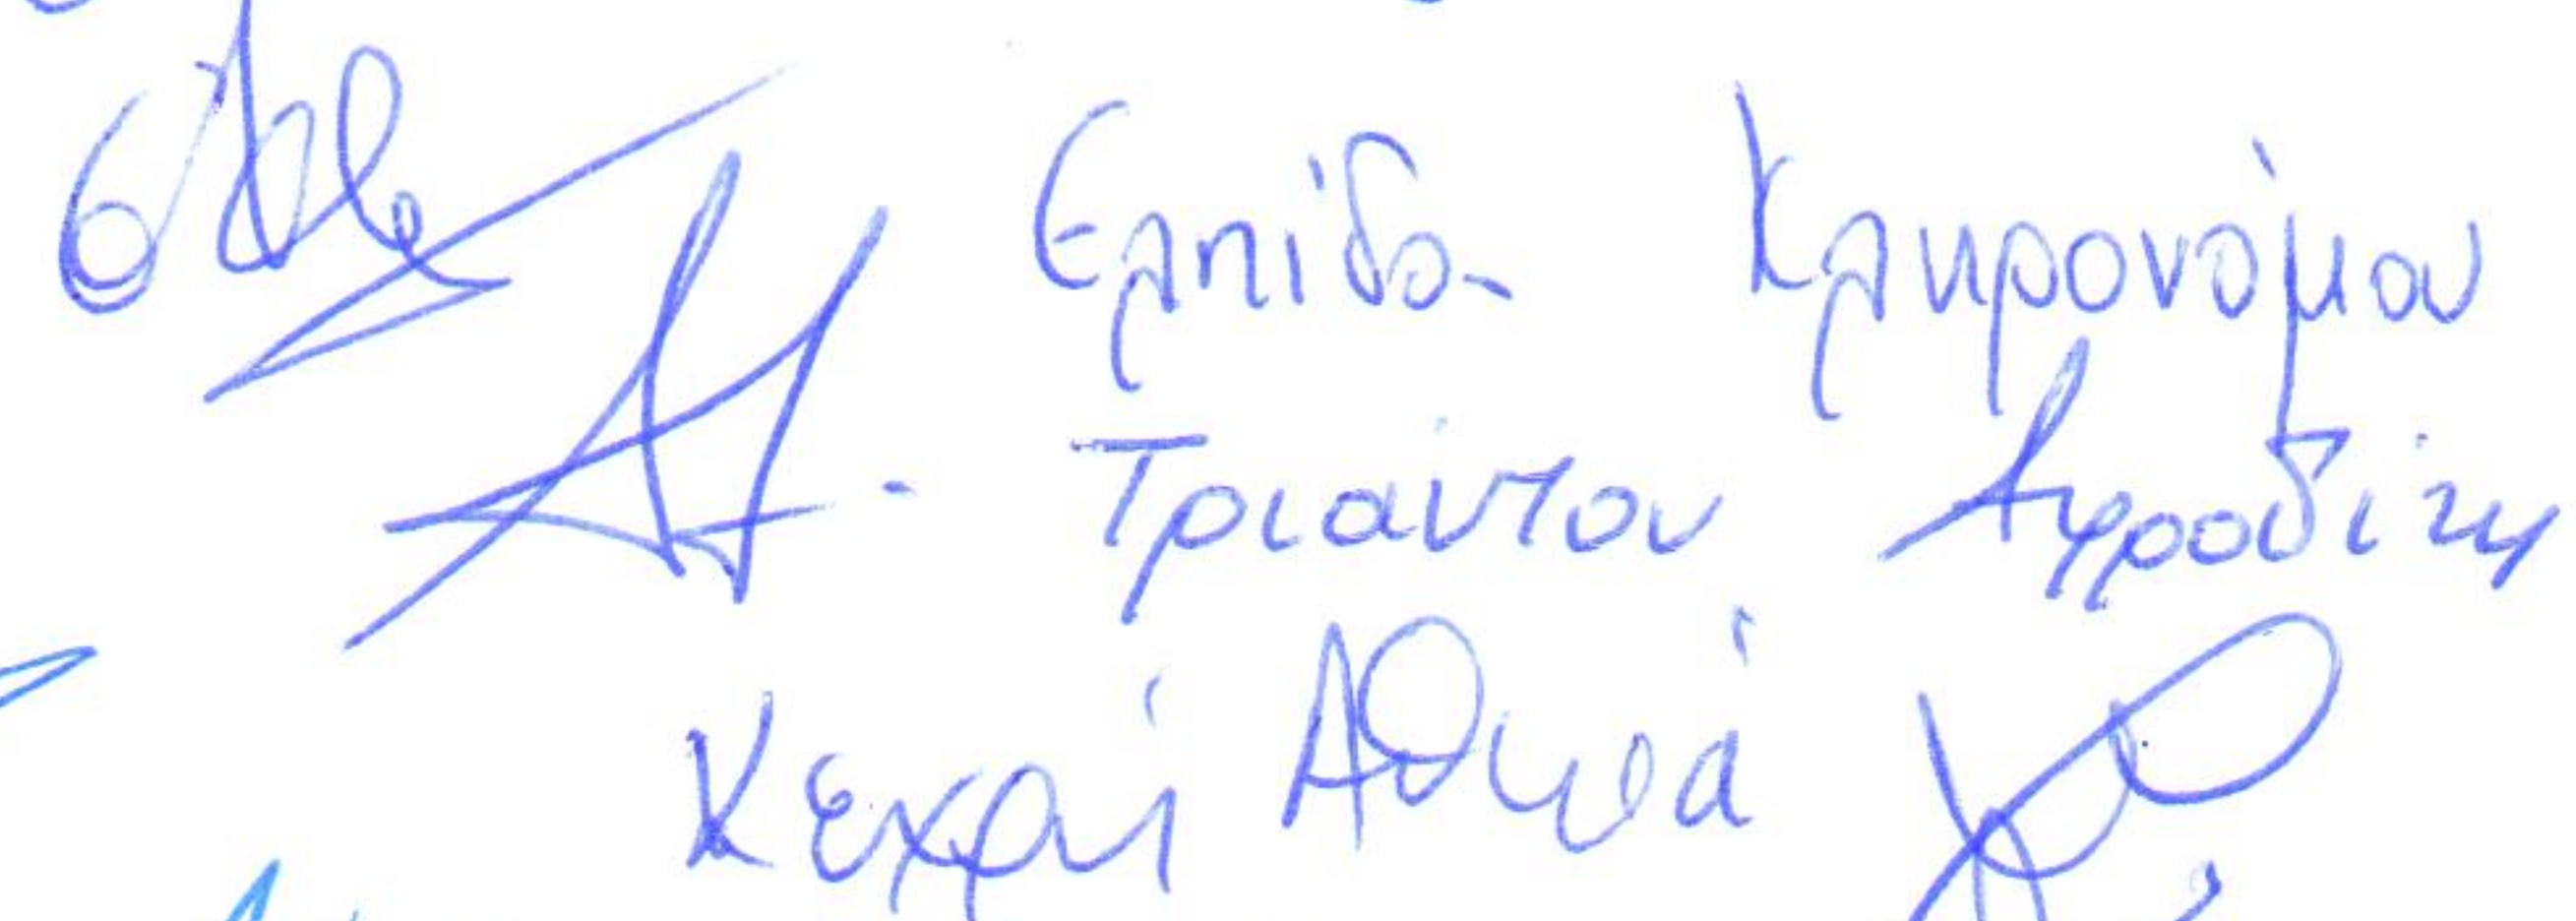 Ελπίδα Κληρονόμου
Τριάντου Αφροδίτη
Κεχρή Αθηνά